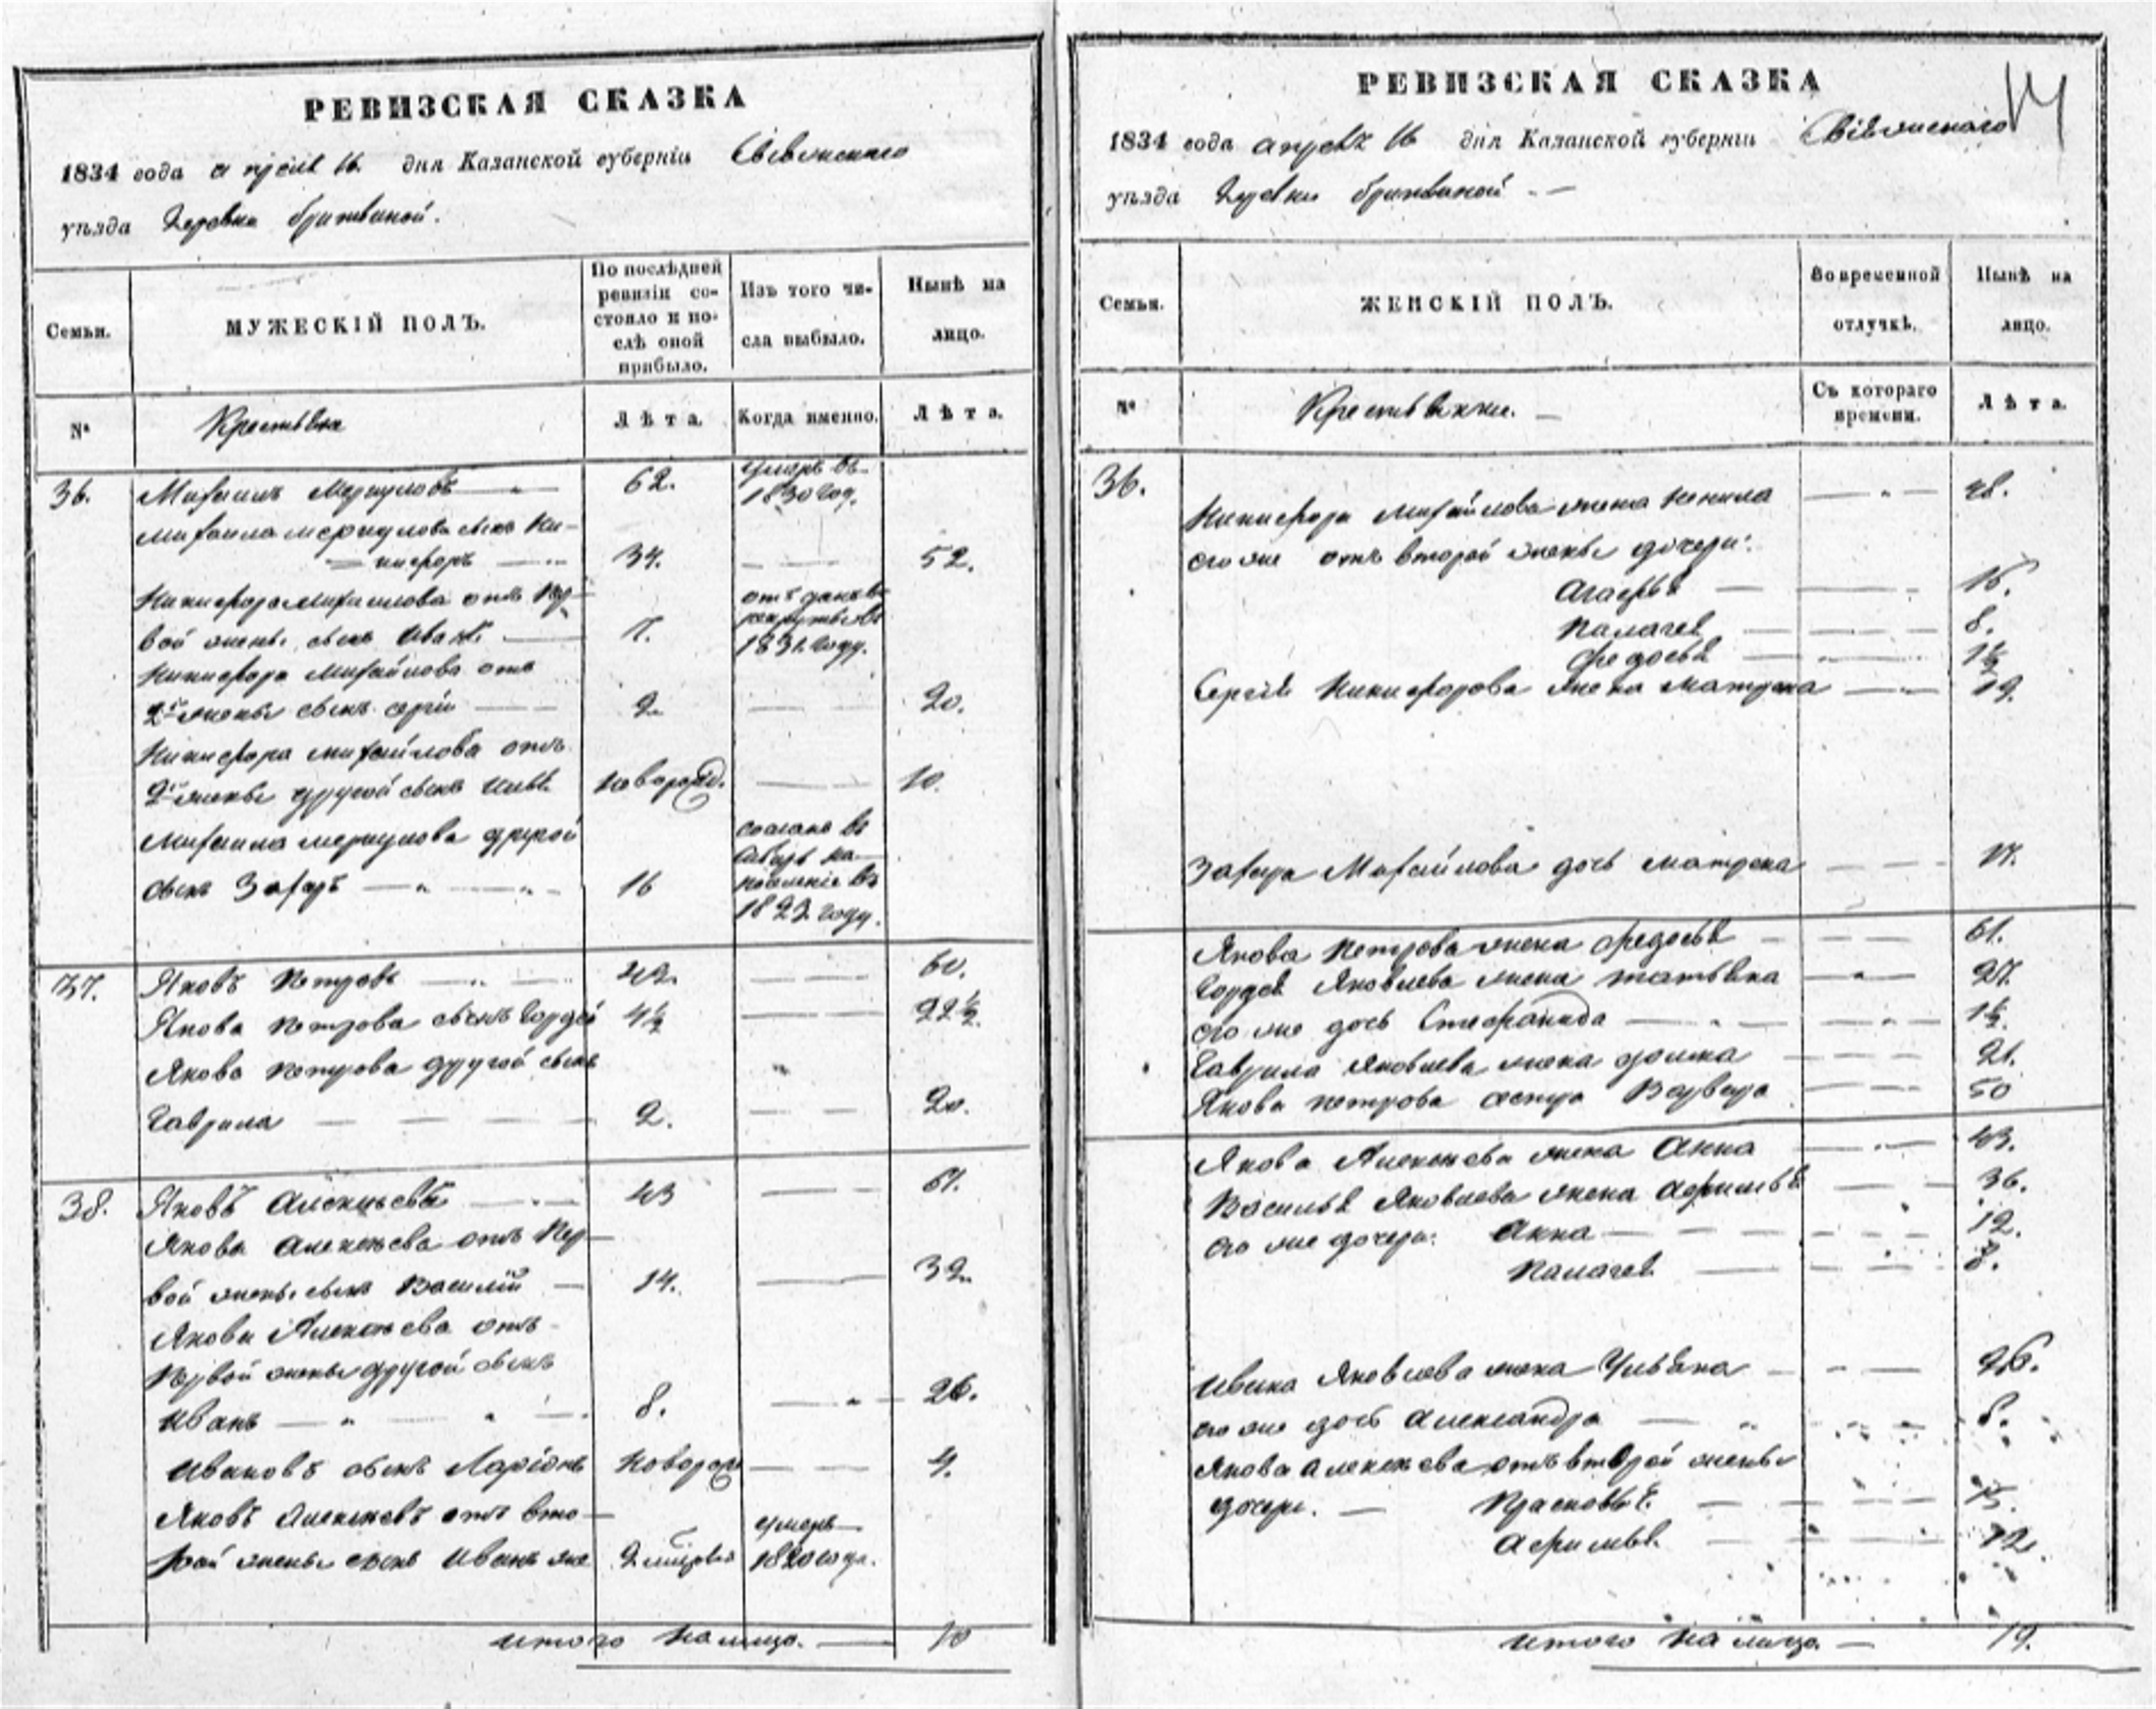 РЕВИЗСКАЯ СКАЗКА
1834 года апреля 16 дня Казанской губерніи Свіяжскаго
уѣзда Деревни бритвиной.
Семьи.
МУЖЕСКІЙ ПОЛЪ.
По послѣдней ревизіи состояло и послѣ оной прибыло.
Изъ того числа выбыло.
Нынѣ на лицо.
№
Крестьяна
Лѣта.
Когда именно.
Лѣта.
36. Михаилъ Меркуловъ 62. умеръ въ 1830 год.
Михаила меркулова сынъ Ни-
кифоръ 34. 52.
Никифора Михаилова отъ пер-
вой жены сынъ Иванъ. 7. отъданъ в рекруты въ 1831 году.
Никифора Михайлова отъ
2й жены сынъ сергій 2 20.
Никифора михайлова отъ
2й жены другой сынъ новорожд. 10.
Михаила меркулова другой
сынъ Захаръ 16 сосланъ въ Сибирь на поселеніе въ 1823 году.
37. Яковъ Петровъ 42. 60.
Якова Петрова сынъ Гордей 4½ 22½.
Якова Петрова другой сынъ
Гаврила 2. 20.
38. Яковъ Алексѣевъ 43 61.
Якова Алексѣева отъ пер-
вой жены сынъ Василій 14. 32.
Якова Алексѣева отъ
первой жены другой сынъ
Иванъ 8. 26.
Ивановъ сынъ Ларіонъ Новорож 4.
Яковъ Алексѣевъ отъ вто-
рой жены сынъ Иванъ же умеръ 1820 года.
итого на лицо. 10
РЕВИЗСКАЯ СКАЗКА
14
1834 года апреля 16 дня Казанской губерніи Свіяжскаго
уѣзда Деревни бритвиной
Семьи.
ЖЕНСКІЙ ПОЛЪ.
Во временной отлучкѣ.
Нынѣ на лицо.
№
Крестьянки.
Съ котораго времени.
Лѣта.
36.
Никифора Михайлова жена Ненила 48.
его же отъ второй жены дочери:
Агафья 16.
Палагея 8.
Федосья 1½
Сергѣя Никифорова жена матрена 19.
Захара Михайлова дочь матрена 17.
Якова Петрова жена федосья 61.
Гордея Яковлева жена татьяна 27.
его же дочь Стефанида 1½.
Гаврила Яковлева жена домна 21.
Якова петрова сестра Варвара 50
Якова Алексѣева жена Анна 43.
Василья Яковлева жена Афимья 36.
его же дочери: Анна 12.
Палагея 8.
Ивана Яковлева жена Ульяна 26.
его же дочь Александра 6.
Якова алексѣева отъ второй жены
дочери. Прасковья. 15.
Афимья. 12.
итого на лицо. 19.